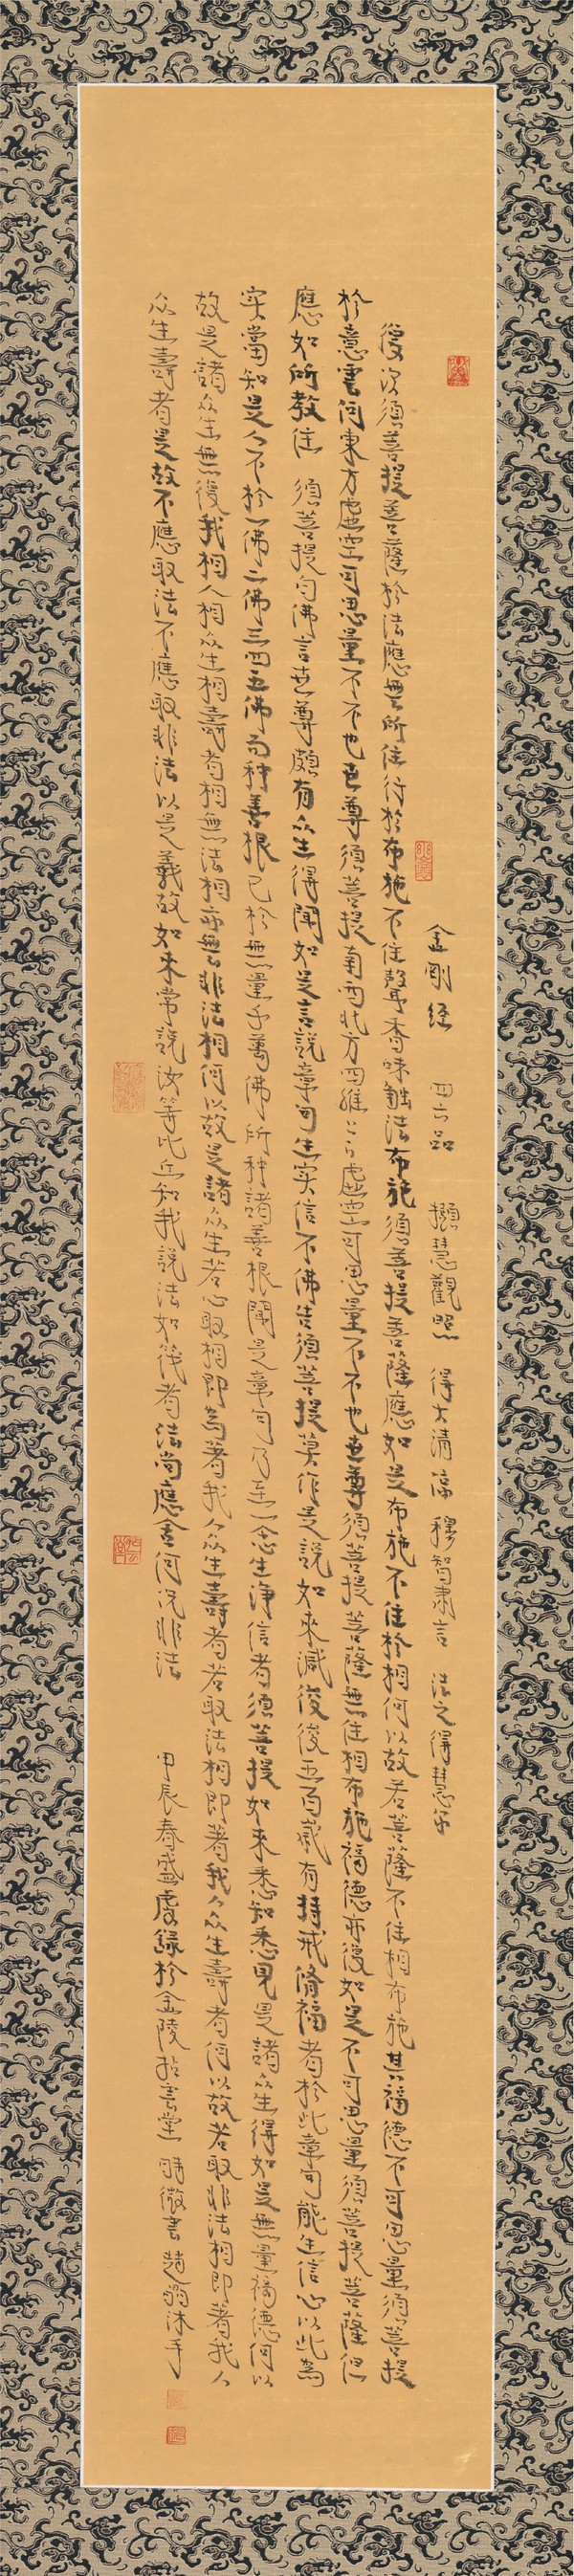 金剛經 四六品 攝慧觀照 得大清涼 釋智肅言 法之得慧乎
復次須菩提菩薩於法應無所住行於布施不住聲香味觸法布施須菩提菩薩應如是布施不住於相何以故若菩薩不住相布施其福德不可思量須菩提
於意雲何東方虛空可思量不不也世尊須菩提南西北方四維上下虛空可思量不不也世尊須菩提菩薩無住相布施福德亦復如是不可思量須菩提菩薩但
應如所教住 須菩提白佛言世尊頗有众生得聞如是言說章句生实信不佛告須菩提莫作是說如來滅後後五百歲有持戒脩福者於此章句能生信心以此為
实當知是人不於一佛二佛三四五佛而种善根已於無量千萬佛所种諸善根聞是章句乃至一念生淨信者須菩提如來悉知悉見是諸众生得如是無量福德何以
故是諸众生無復我相人相众生相壽者相無法相亦無非法相何以故是諸众生若心取相即為著我人众生壽者若取法相即著我人众生壽者何以故若取非法相即著我人
众生壽者是故不應取法不應取非法以是義故如來常說汝等比丘知我說法如筏者法尚應舍何況非法 甲辰春盛虔錄於金陵 善堂 微書 趙翁沐手